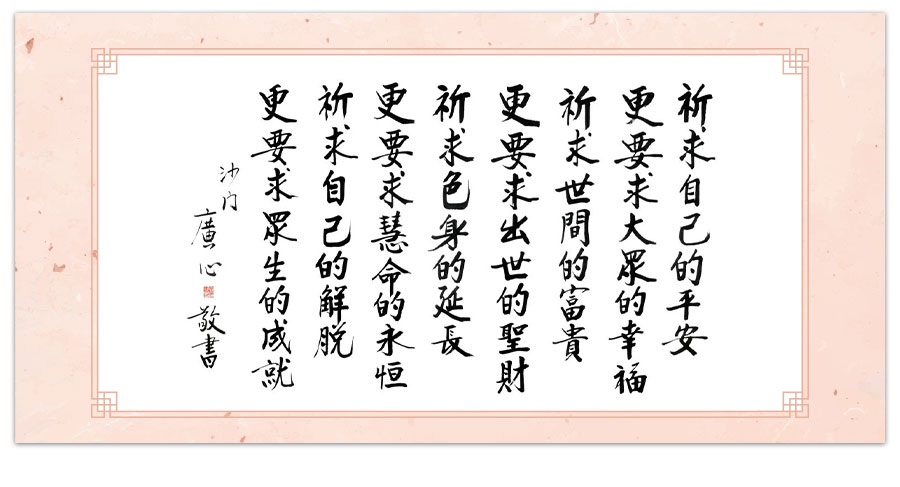 祈求自己的平安
更要求大眾的幸福
祈求世間的富貴
更要求出世的聖財
祈求色身的延長
更要求慧命的永恒
祈求自己的解脫
更要求眾生的成就
沙门
廣心
敬書